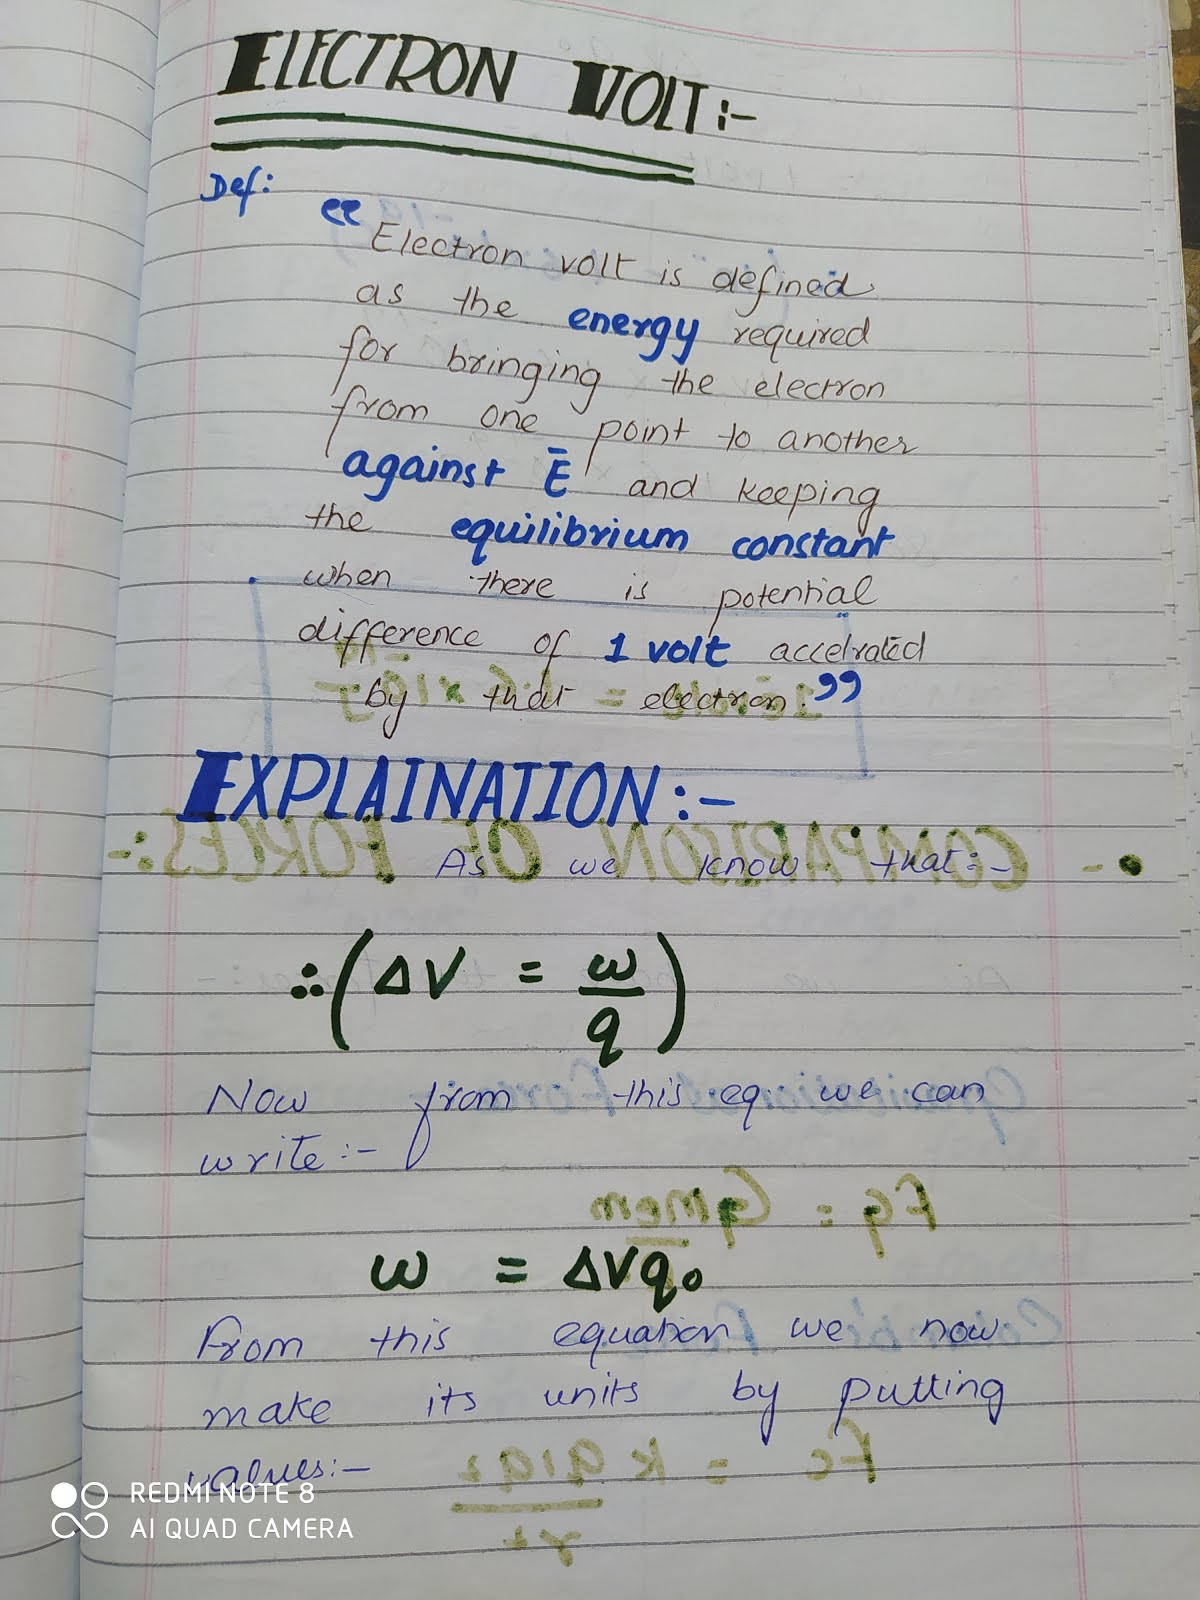 ELECTRON VOLT:-
Def:
“ Electron volt is defined
as the energy required
for bringing the electron
from one point to another
against Ē and keeping
the equilibrium constant
when there is potential
difference of 1 volt accelrated
by that electron. ”
EXPLAINATION:-
As we know that:-
∴ (ΔV = w/q)
Now from this eq. we can
write:-
w = ΔVq₀
From this equation we now
make its units by putting
values:-
REDMI NOTE 8
AI QUAD CAMERA